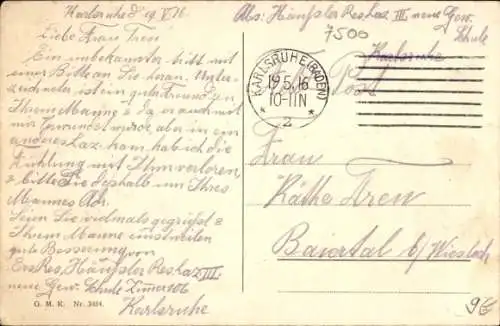 Karlsruhe d 19.V.16.
Liebe Frau Tren!
Ein unbekannter bitt mit
einer Bitte an Sie heran. Unter-
zeichneter ist ein guter Freund von
Ihrem Manne & da er auch mit
mir verwundet wurde, aber in ein
anderes Laz. kam, hab ich die
Fühlung mit Ihm verloren,
& bitte Sie deshalb um Ihres
Mannes Adr.
Seien Sie vielmals gegrüßt &
Ihrem Manne einstweilen
gute Besserung von
Ers Res. Häußler Res Laz III
neue Gew. Schule Zimmer 106
Karlsruhe
G. M. K. Nr. 3484.
Abs: Häußler Res Laz III neue Gew.
Schule
7500
Karlsruhe
KARLSRUHE (BADEN)
19.5.16
10-11N
* 2 *
Post
Frau
Käthe Tren
Baiertal b/Wiesloch
9E